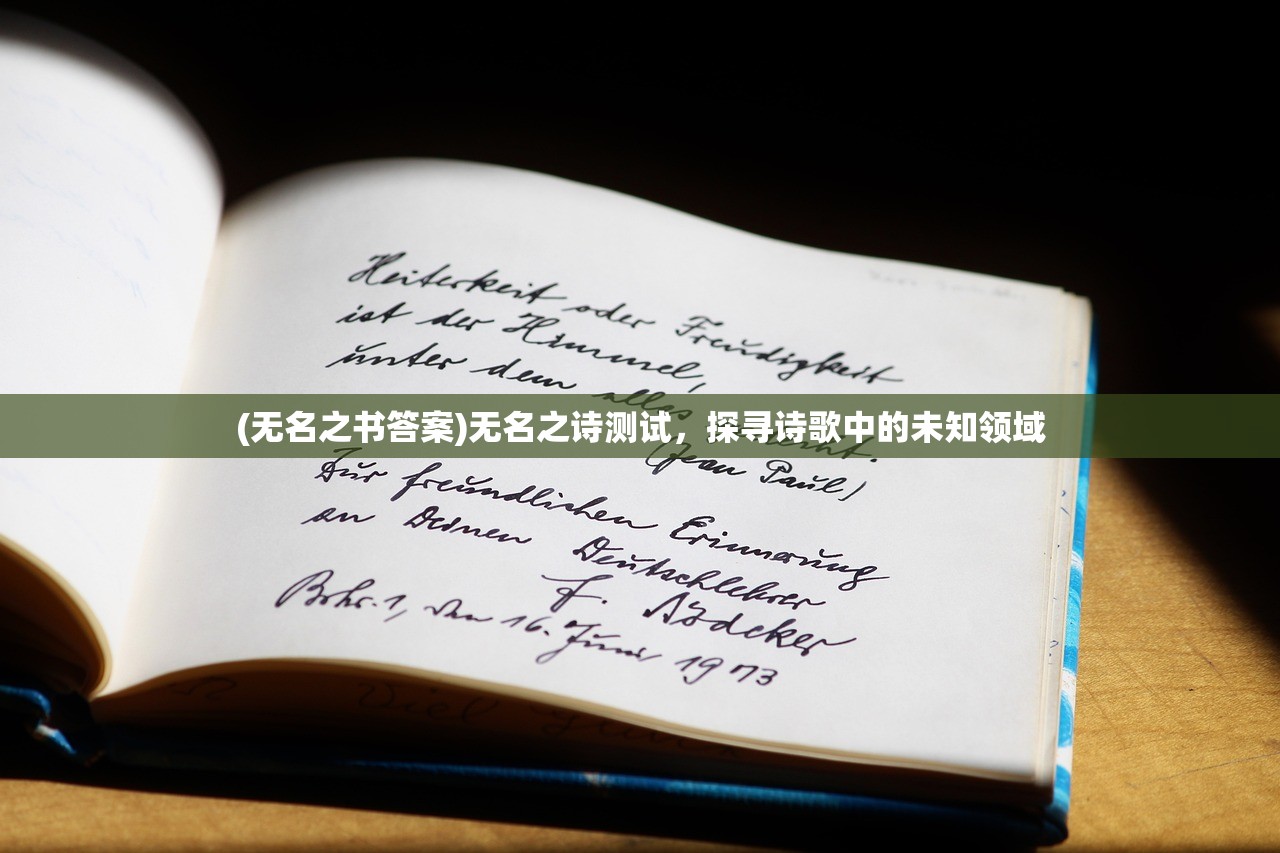 Heiterkeit oder Freudigkeit
ist der Himmel,
unter dem alles
(无名之书答案)无名之诗测试，探寻诗歌中的未知领域
(Jean Paul)
Zur freundlichen Erinnerung
an Deinen Deutschlehrer
F.
den 16. Juni 1973